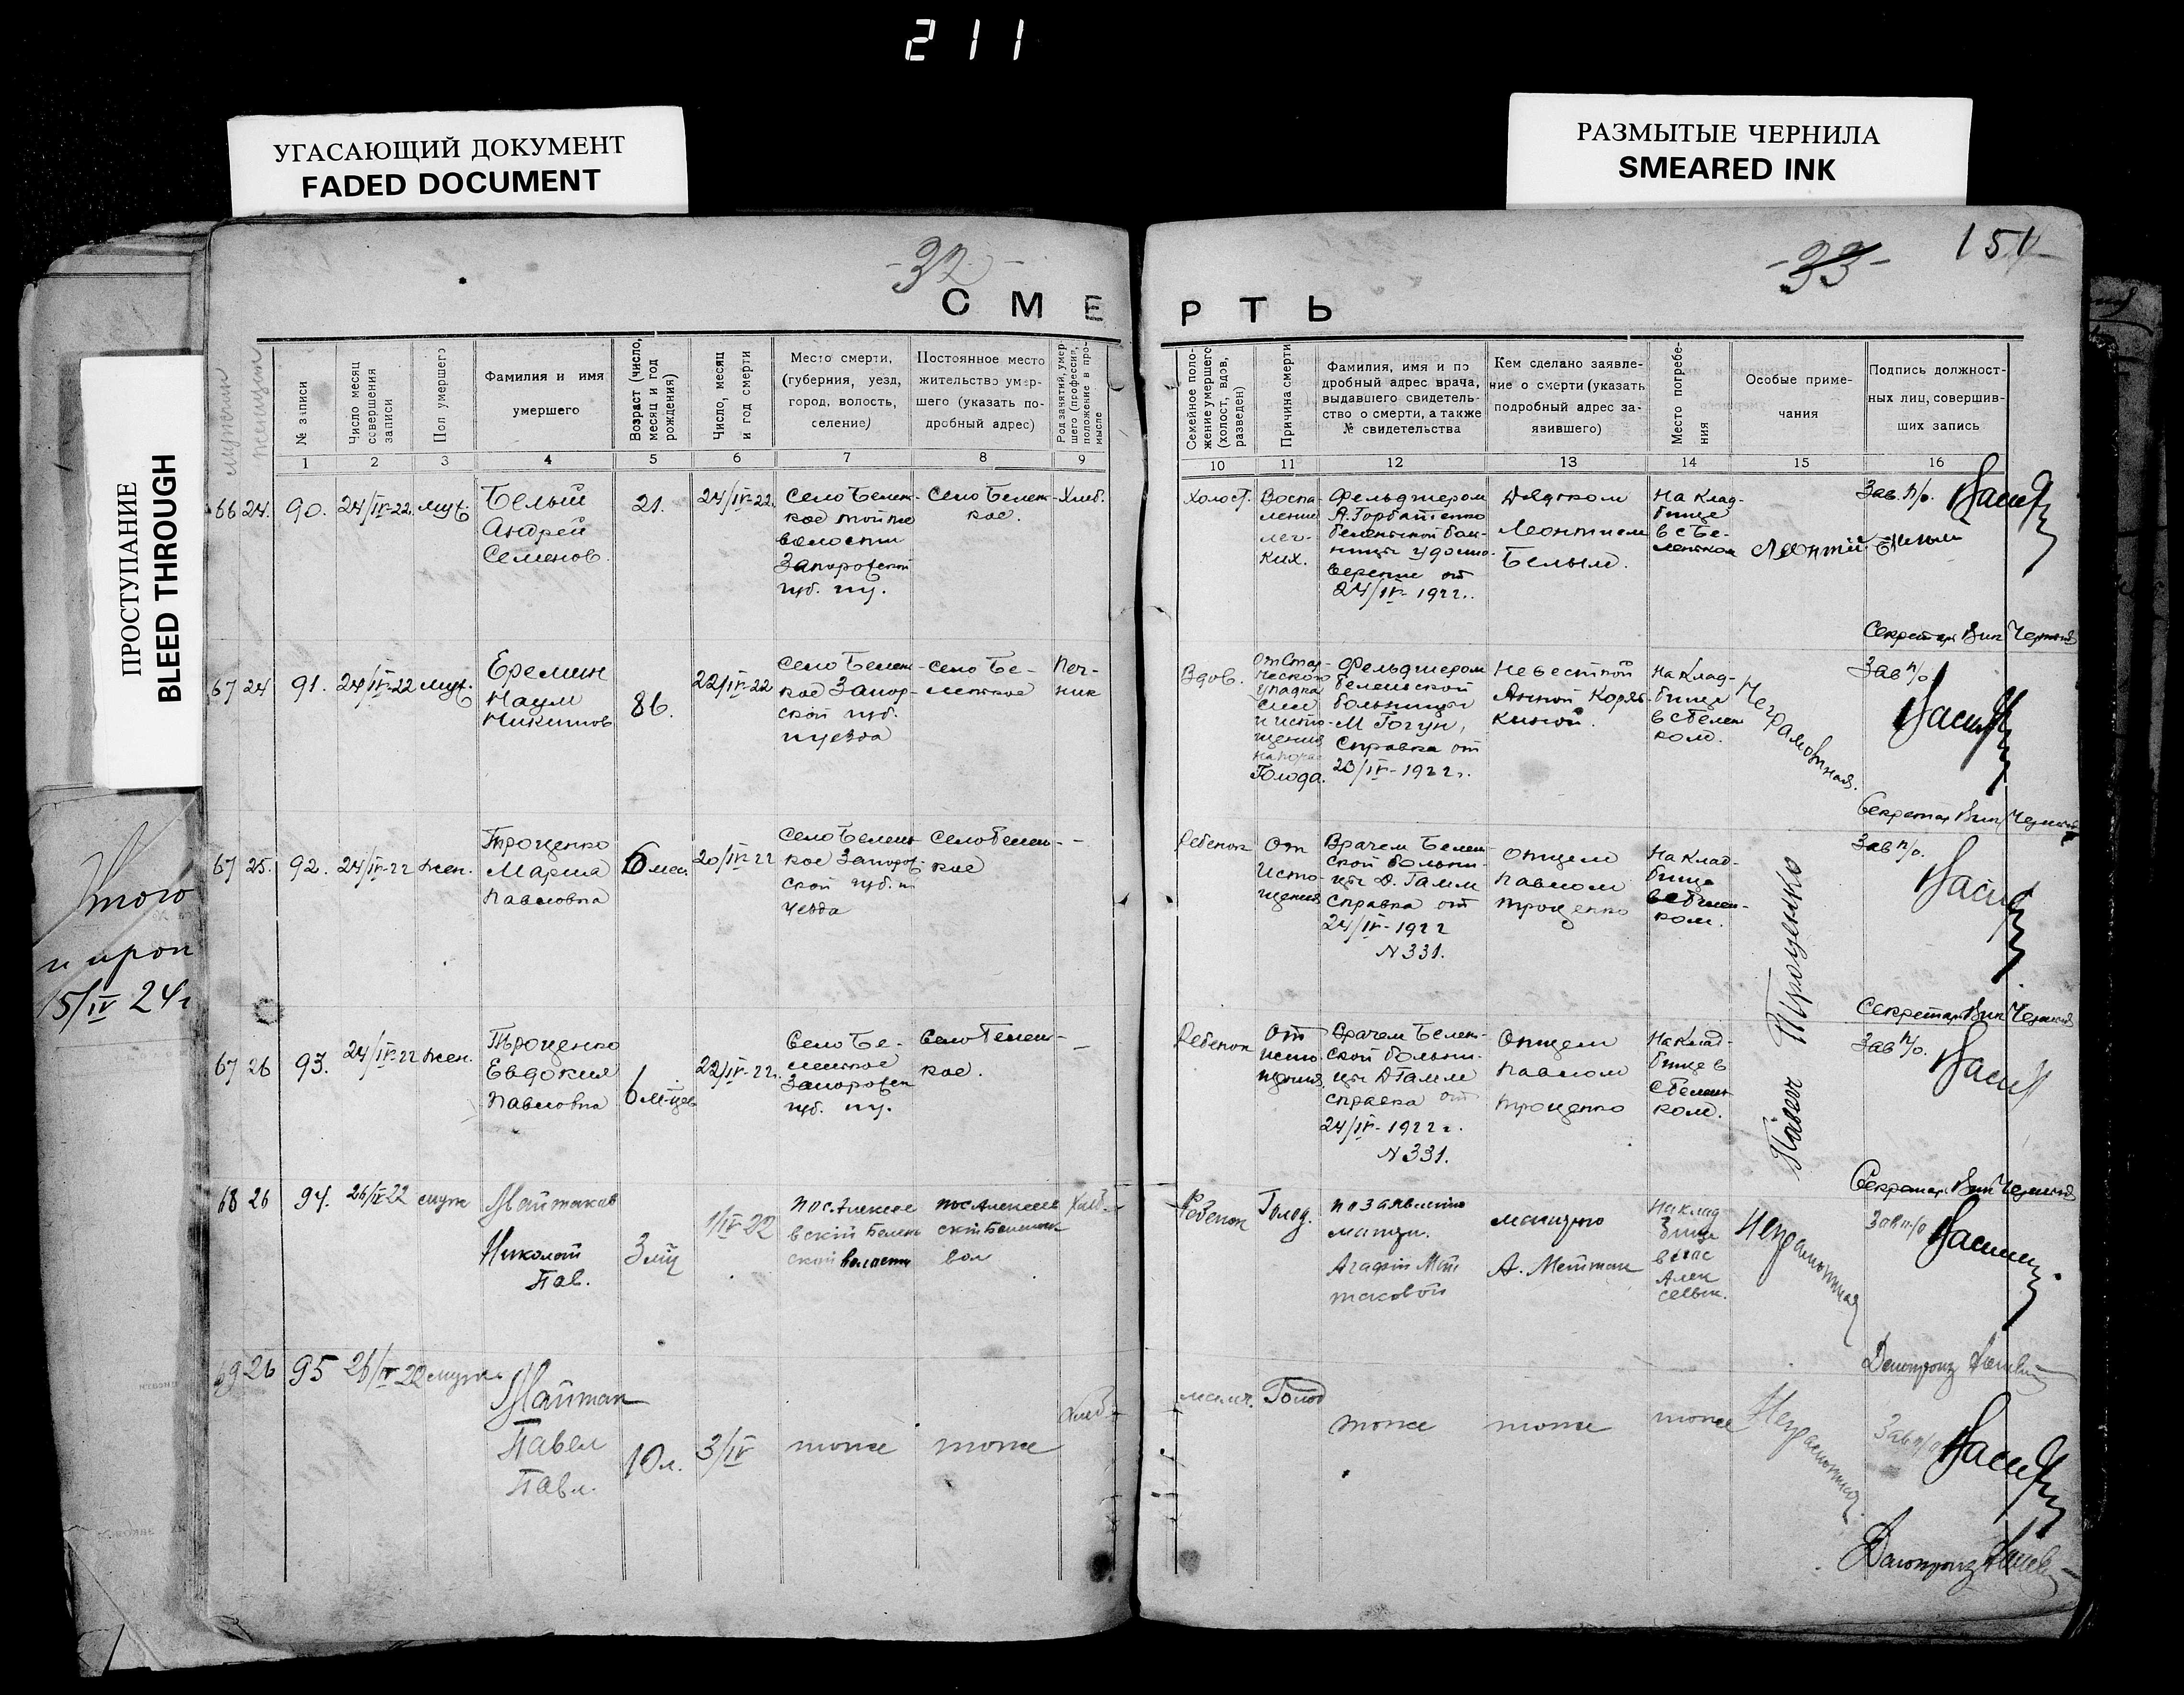 211
УГАСАЮЩИЙ ДОКУМЕНТ
FADED DOCUMENT
РАЗМЫТЫЕ ЧЕРНИЛА
SMEARED INK
ПРОСТУПАНИЕ
BLEED THROUGH
Итого
15/IV 24г
-32-
-33-
СМЕРТЬ
мужчин
женщин
№ записи
Число месяц совершения записи
Пол умершего
Фамилия и имя
умершего
Возраст (число, месяц и год рождения)
Число, месяц и год смерти
Место смерти,
(губерния, уезд,
город, волость,
селение)
Постоянное место
жительство умер-
шего (указать по-
дробный адрес)
Род занятий, умер-
шего (профессия,
положение в про-
мысле
Семейное поло-
жение умершего
(холост, вдов,
разведен)
Причина смерти
Фамилия, имя и по
дробный адрес врача,
выдавшего свидетель-
ство о смерти, а также
№ свидетельства
Кем сделано заявле-
ние о смерти (указать
подробный адрес за-
явившего)
Место погребе-
ния
Особые приме-
чания
Подпись должност-
ных лиц, совершив-
ших запись
1 2 3 4 5 6 7 8 9 10 11 12 13 14 15 16
66 24. 90. 24/IV-22. муж.
Белый
Андрей
Семенов.
21.
24/IV-22.
Село Белень-
кое той же
волости
Запорожской
губ. и у.
Село Белень-
кое.
Хлеб.
Холост.
Воспа-
ление
лег-
ких.
Фельдшером
А. Горбатенко
беленской боль-
ницы удосто-
верение от
24/IV-1922г.
Дядьком
Леонтием
Белым.
На клад-
бище
в с Бе-
леньком
Леонтий Белый
Зав. п/о.
Секретарь
67 24 91. 24/IV-22 муж.
Еремин
Наум
Никитов
86.
22/IV-22
Село Белень-
кое Запор-
ской губ.
и уезда
Село Бе-
ленькое
Печ-
ник
Вдов.
От Стар-
ческого
упадка
сил
и исто-
щения
на почве
Голода.
Фельдшером
беленьской
больницы
М Гогун,
Справка от
23/IV-1922г.
Невесткой
Анной Коряб-
киной.
На клад-
бище
в с Белен
ком.
Неграмотная.
Зав п/о
Секретарь
67 25. 92. 24/IV-22 жен.
Троценко
Мария
Павловна
6 меся
20/IV-22
Село Белень-
кое Запорож-
ской губ. и
уезда
Село Белень-
кое
-
Ребенок
От
исто-
щения
Врачем Белен-
ской больни-
цы Д. Гамм
Справка от
24/IV-1922
N 331.
Отцем
Павлом
Троценко
На клад-
бище
в с Белен-
ком.
Павел Троценко
Зав п/о.
Секретарь
67 26 93. 24/IV-22 жен.
Троценко
Евдокия
Павловна
6 м-цев
22/IV-22г.
Село Бе-
ленькое
Запорожс
губ. и у.
Село Белень-
кое.
-
Ребенок
От
исто-
щения
Врачем Белен-
ской больни-
цы Д Гамм
справка от
24/IV-1922г.
N 331.
Отцем
Павлом
Троценко
На клад-
бище в
с Белень
ком.
Зав п/о.
Секретарь
68 26 94. 26/IV 22 муж
Майтаков
Николай
Пав.
3 мц
1/IV-22
пос. Алексее
вский Белень
ской волости
пос Алексеев
ский Беленьк
вол
Хлеб.
Ребенок
Голод.
по заявлению
матери.
Агафии Май
таковой
матерью
А. Мейтак
На клад
бище
в пос
Алек
сеевк.
Неграмотная
Зав п/о
Делопроиз
69 26 95 26/IV-22 муж.
Майтак
Павел
Павл.
10 л.
3/IV
тоже
тоже
Хлеб.
мальч.
Голод
тоже
тоже
тоже
Неграмотная
Зав п/о
Делопроиз